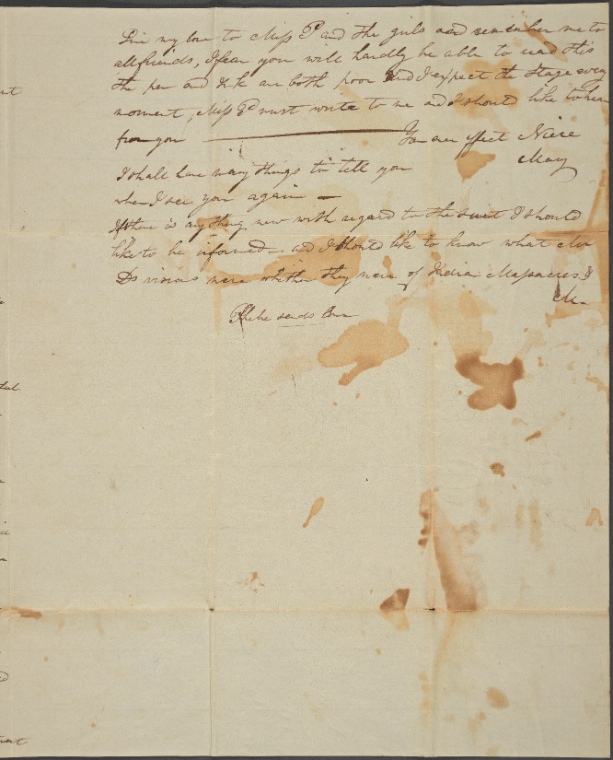 Give my love to Miss P and the girls and remember me to
all friends, I fear you will hardly be able to read this
the pen and ink are both poor and I expect the stage every
moment, Miss P must write to me and I should like to hear
from you Your ever affect Niece
Mary
I shall have many things to tell you
when I see you again
If there is anything new with regard to the suit I should
like to be informed and I should like to know what Mr
Ds visions were whether they were of Indian Massacres &
Phebe sends love